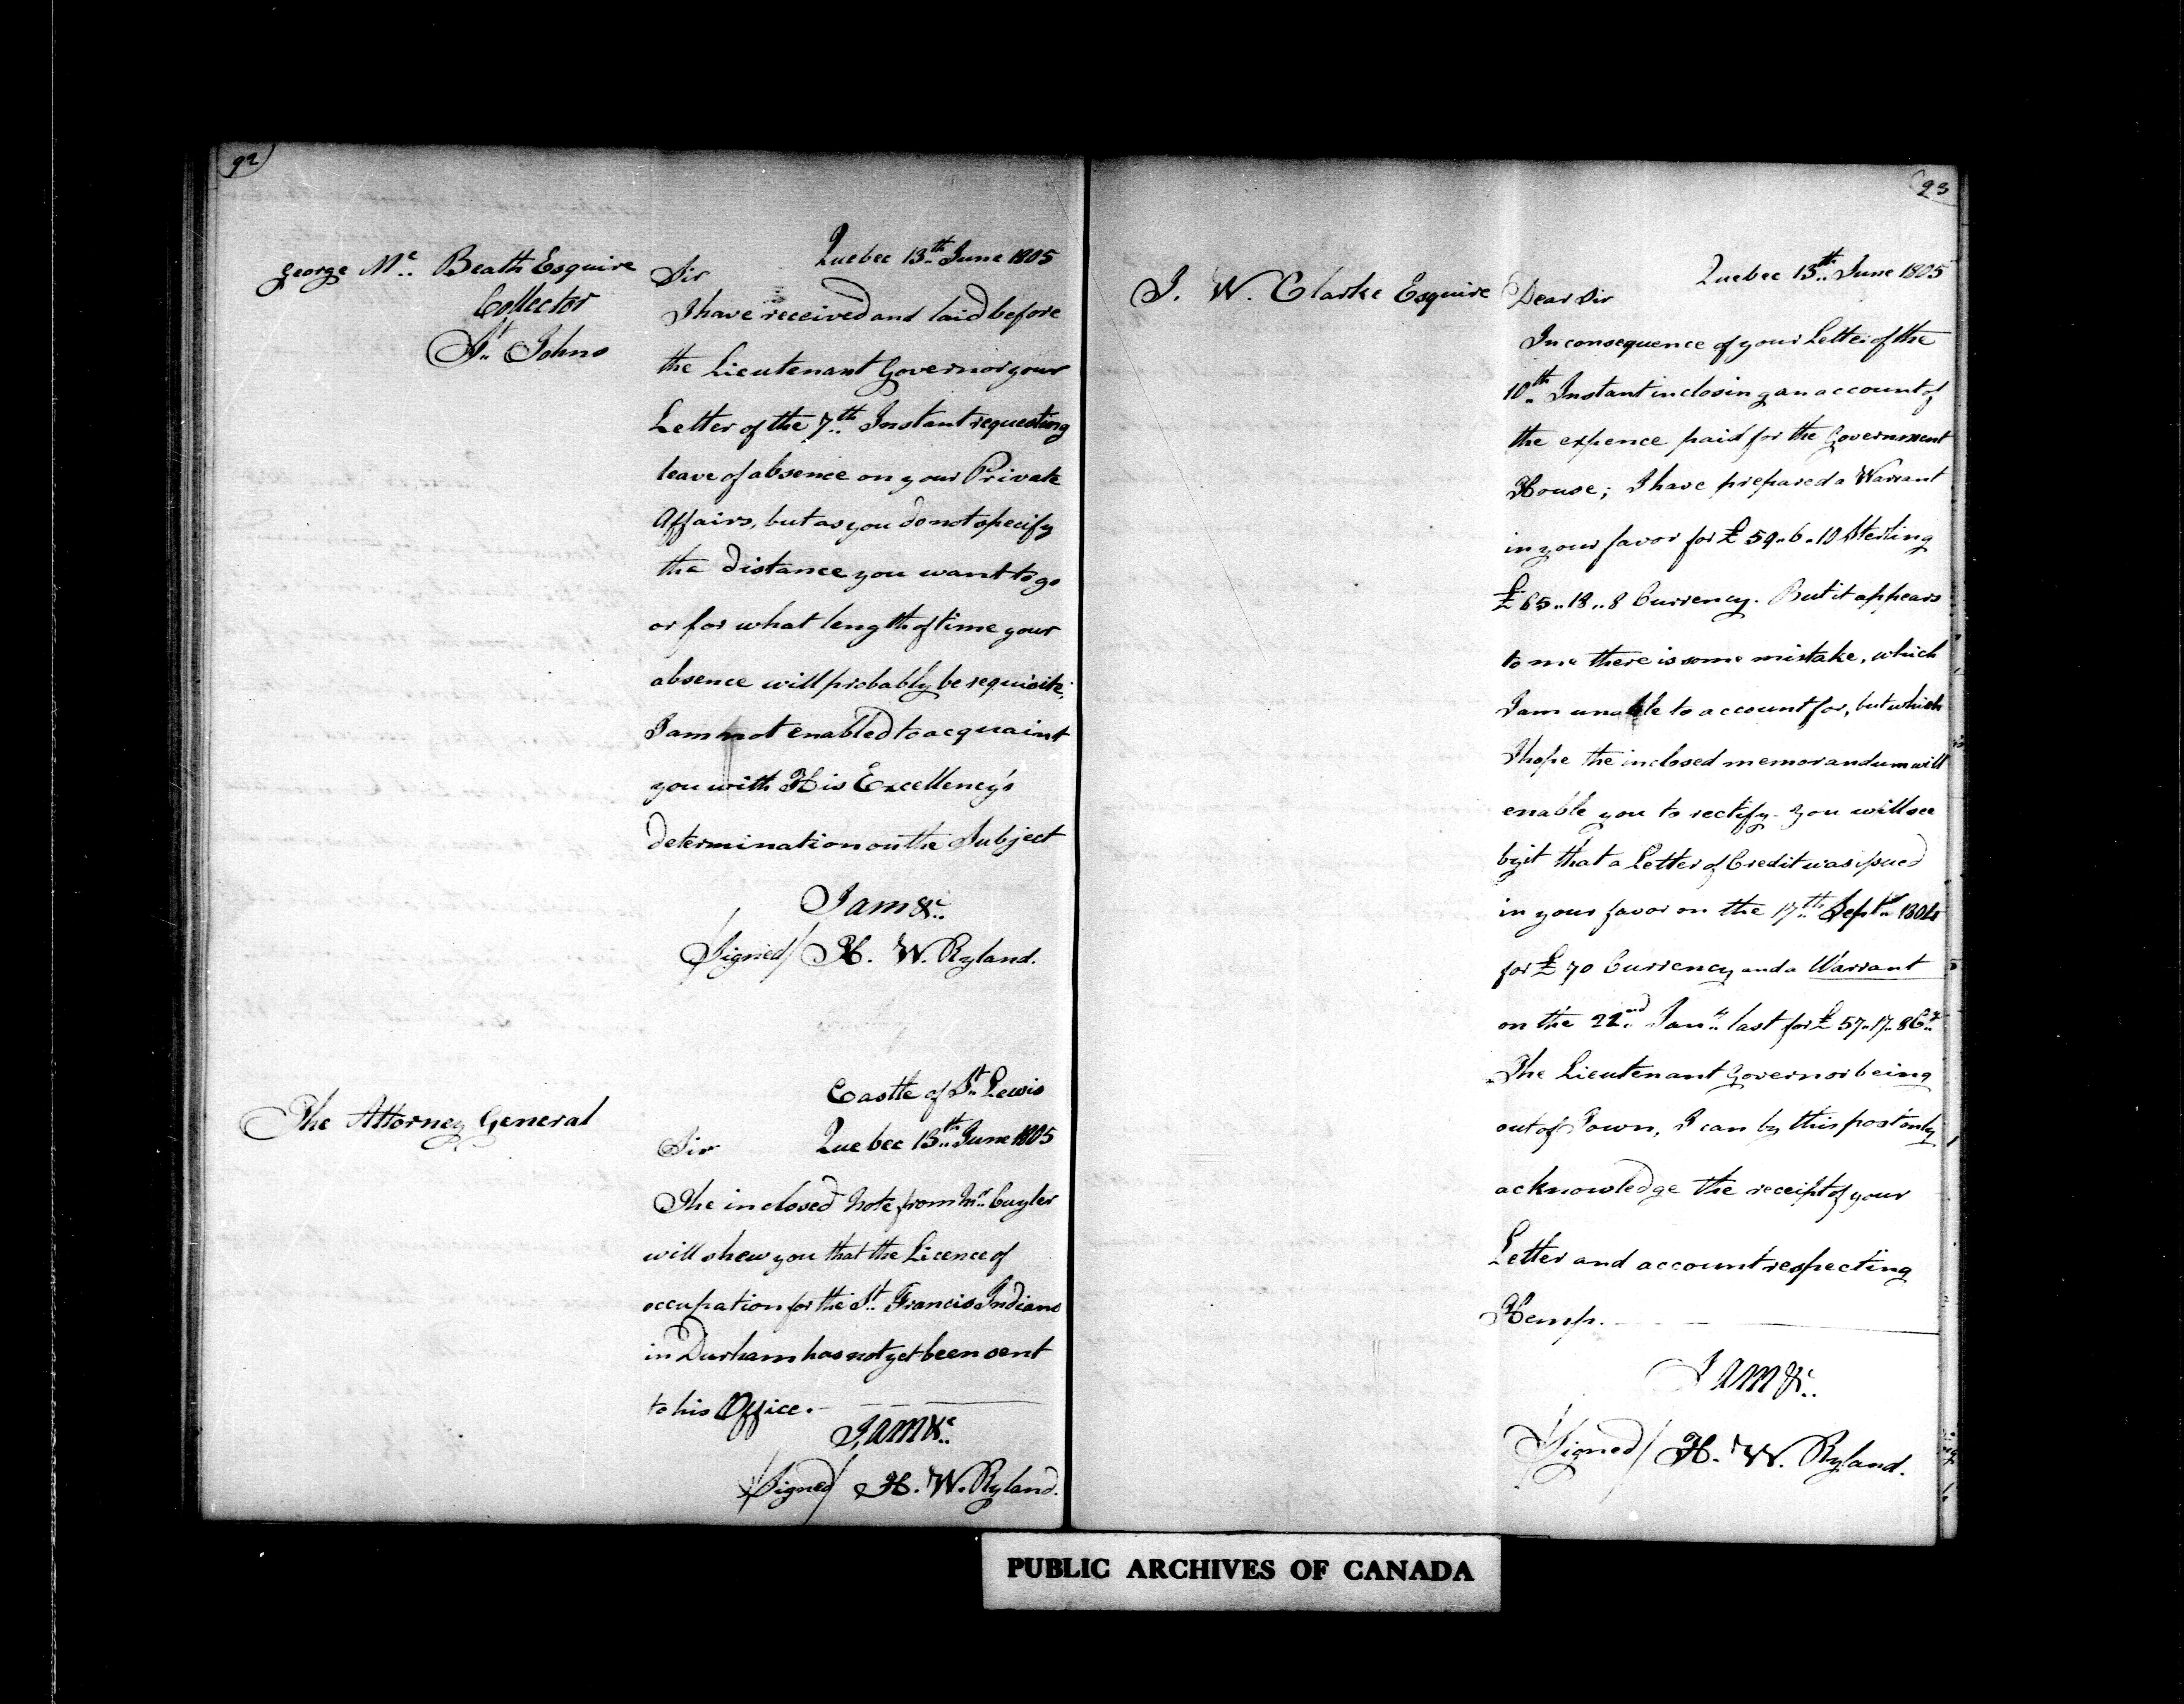 92
George Mc. Beath Esquire
Collector
St. Johns
Quebec 13th June 1805
Sir
I have received and laid before
the Lieutenant Governor your
Letter of the 7th Instant requesting
leave of absence on your Private
Affairs, but as you do not specify
the distance you want to go
or for what length of time your
absence will probably be requisite,
I am not enabled to acquaint
you with His Excellency's
determination on the Subject
I am &c.
/Signed/ H. W. Ryland.
The Attorney General
Castle of St. Lewis
Quebec 13th June 1805
Sir
The inclosed Note from Mr. Cuyler
will shew you that the Licence of
occupation for the St. Francis Indians
in Durham has not yet been sent
to his Office.
I am &c.
/Signed/ H. W. Ryland.
93
I. W. Clarke Esquire
Quebec 13th June 1805
Dear Sir
In consequence of your Letter of the
10th Instant inclosing an account of
the expence paid for the Government
House; I have prepared a Warrant
in your favor for £ 59..6..10 Sterling
£ 65..18..8 Currency. But it appears
to me there is some mistake, which
I am unable to account for, but which
I hope the inclosed memorandum will
enable you to rectify. You will see
by it that a Letter of Credit was issued
in your favor on the 17th Sept. 1804
for £ 70 Currency and a Warrant
on the 22nd Jany. last for £ 57..17..8 Cy.
The Lieutenant Governor being
out of Town, I can by this post only
acknowledge the receipt of your
Letter and account respecting
Hemp.
I am &c.
/Signed/ H. W. Ryland.
PUBLIC ARCHIVES OF CANADA